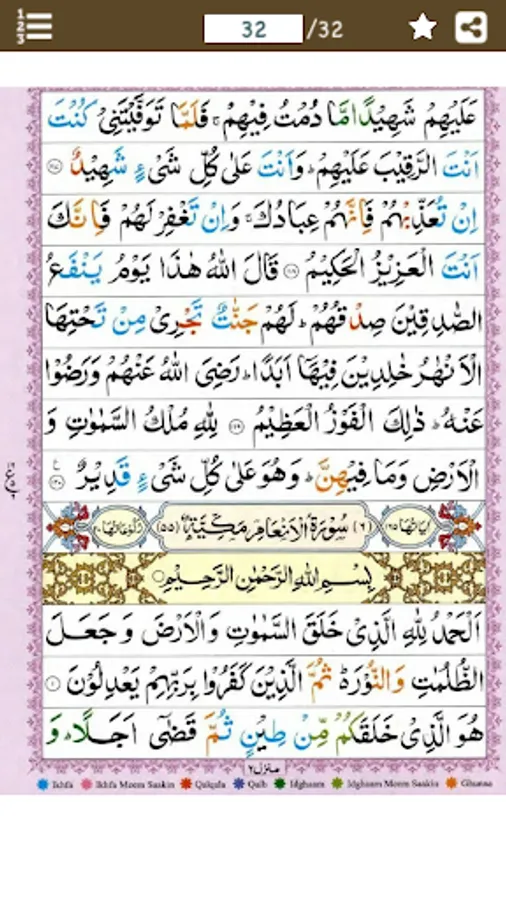 32 /32
عَلَيْهِمْ شَهِيْدًا مَّا دُمْتُ فِيْهِمْ ۚ فَلَمَّا تَوَفَّيْتَنِيْ كُنْتَ
اَنْتَ الرَّقِيْبَ عَلَيْهِمْ ؕ وَاَنْتَ عَلٰى كُلِّ شَیْءٍ شَهِيْدٌ ۝۱۱۷
اِنْ تُعَذِّبْهُمْ فَاِنَّهُمْ عِبَادُكَ ۚ وَاِنْ تَغْفِرْ لَهُمْ فَاِنَّكَ
اَنْتَ الْعَزِيْزُ الْحَكِيْمُ ۝۱۱۸ قَالَ اللّٰهُ هٰذَا يَوْمُ يَنْفَعُ
الصّٰدِقِيْنَ صِدْقُهُمْ ؕ لَهُمْ جَنّٰتٌ تَجْرِىْ مِنْ تَحْتِهَا
الْاَنْهٰرُ خٰلِدِيْنَ فِيْهَاۤ اَبَدًا ؕ رَضِىَ اللّٰهُ عَنْهُمْ وَرَضُوْا
عَنْهُ ؕ ذٰلِكَ الْفَوْزُ الْعَظِيْمُ ۝۱۱۹ لِلّٰهِ مُلْكُ السَّمٰوٰتِ وَ
الْاَرْضِ وَمَا فِيْهِنَّ ؕ وَهُوَ عَلٰى كُلِّ شَیْءٍ قَدِيْرٌ ۝۱۲۰
اٰيَاتُهَا ۱۶۵ (۶) سُوْرَةُ الْاَنْعَامِ مَكِّيَّةٌ (۵۵) رُكُوْعَاتُهَا ۲۰
بِسْمِ اللّٰهِ الرَّحْمٰنِ الرَّحِيْمِ
اَلْحَمْدُ لِلّٰهِ الَّذِىْ خَلَقَ السَّمٰوٰتِ وَالْاَرْضَ وَجَعَلَ
الظُّلُمٰتِ وَالنُّوْرَ ؕ ثُمَّ الَّذِيْنَ كَفَرُوْا بِرَبِّهِمْ يَعْدِلُوْنَ ۝۱
هُوَ الَّذِىْ خَلَقَكُمْ مِّنْ طِيْنٍ ثُمَّ قَضٰۤى اَجَلًا ؕ وَ
منزل۲
Ikhfa Ikhfa Meem Saakin Qalqala Qalb Idghaam Idghaam Meem Saakin Ghunna